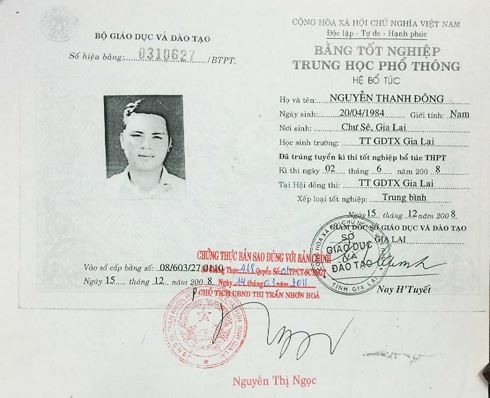 BỘ GIÁO DỤC VÀ ĐÀO TẠO
Số hiệu bằng: 0310627 /BTPT.
CỘNG HÒA XÃ HỘI CHỦ NGHĨA VIỆT NAM
Độc lập - Tự do - Hạnh phúc
BẰNG TỐT NGHIỆP
TRUNG HỌC PHỔ THÔNG
HỆ BỔ TÚC
Họ và tên: NGUYỄN THANH ĐÔNG
Ngày sinh: 20/04/1984 Giới tính: Nam
Nơi sinh: Chư Sê, Gia Lai
Học sinh trường: TT GDTX Gia Lai
Đã trúng tuyển kì thi tốt nghiệp bổ túc THPT
Kì thi ngày 02 tháng 6 năm 2008
Tại Hội đồng thi: TT GDTX Gia Lai
Xếp loại tốt nghiệp: Trung bình
Ngày 15 tháng 12 năm 2008
GIÁM ĐỐC SỞ GIÁO DỤC VÀ ĐÀO TẠO
GIA LAI
SỞ
GIÁO DỤC
VÀ
ĐÀO TẠO
TỈNH GIA LAI
Nay H'Tuyết
Vào sổ cấp bằng số: 08/603/27 0110
Ngày 15 tháng 12 năm 2008
CHỨNG THỰC BẢN SAO ĐÚNG VỚI BẢN CHÍNH
CHỦ TỊCH UBND THỊ TRẤN NHƠN HOÀ
Nguyễn Thị Ngọc